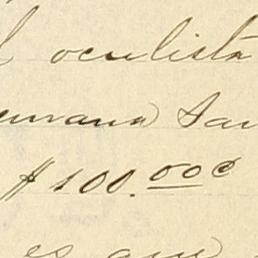 l oculista
emana San
$100.00c
es que